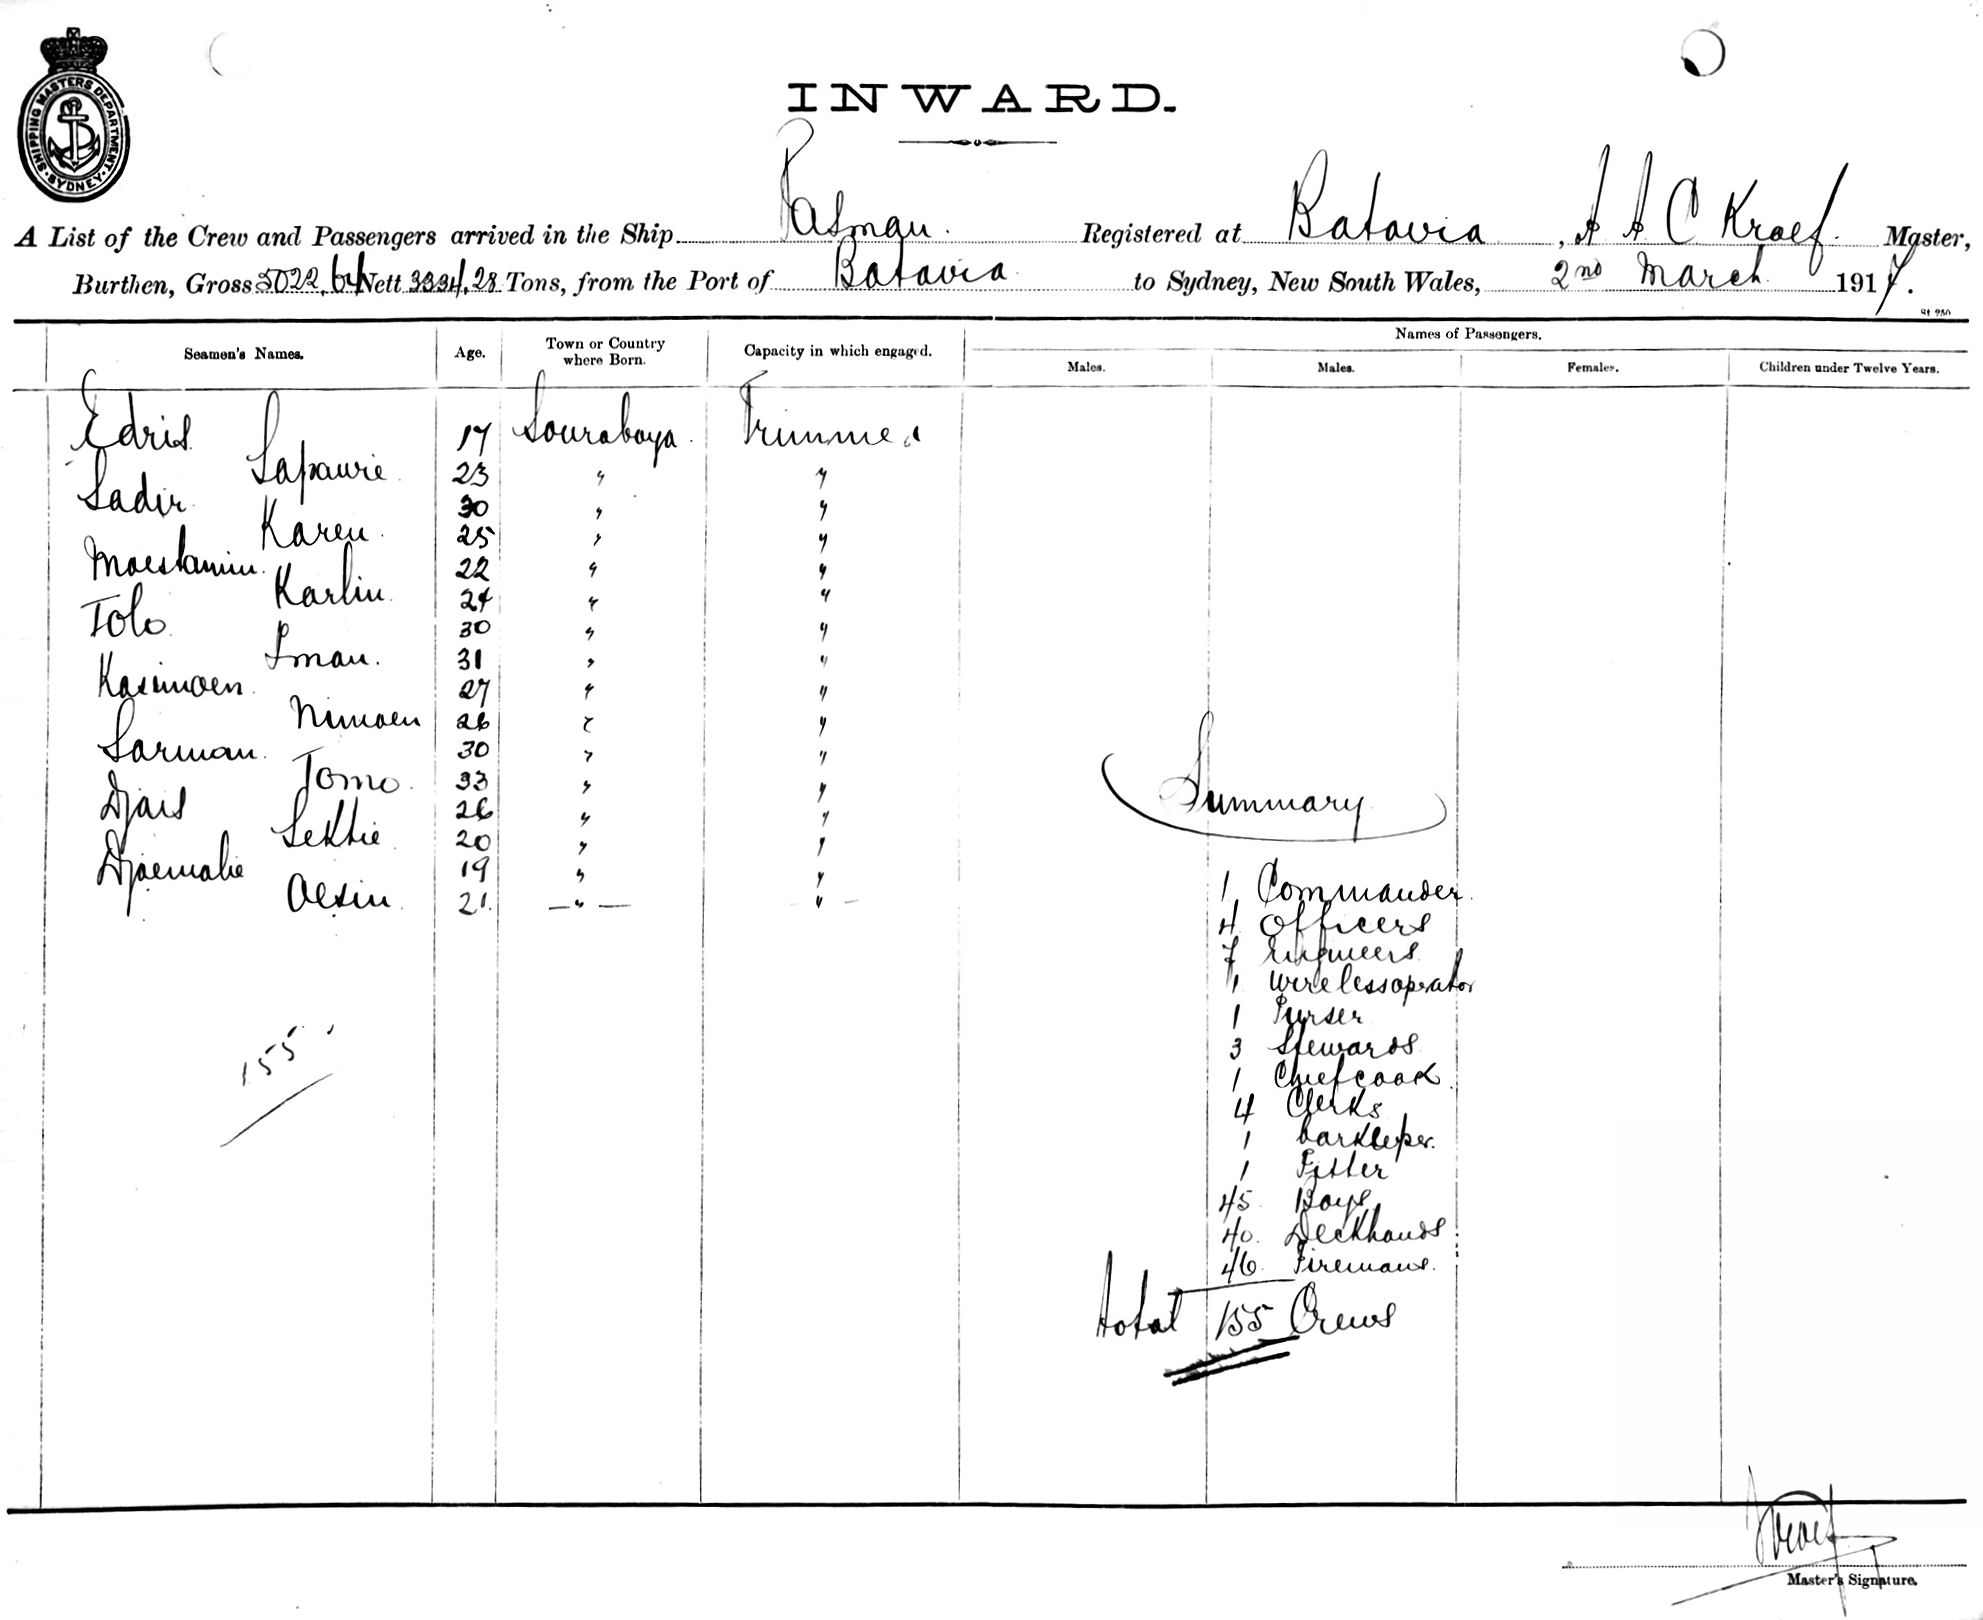 SHIPPING MASTERS DEPARTMENT
SYDNEY
INWARD.
A List of the Crew and Passengers arrived in the Ship Tasman. Registered at Batavia, A A C Kroef. Master,
Burthen, Gross 5022,64 Nett 3334,28 Tons, from the Port of Batavia to Sydney, New South Wales, 2nd March 1917.
St 250
Names of Passengers.
Seamen's Names. Age. Town or Country where Born. Capacity in which engaged. Males. Males. Females. Children under Twelve Years.
Edris 17 Sourabaya. Trimmer
Sapawie 23 " "
Sadir 30 " "
Karen. 25 " "
Moestamin. 22 " "
Karlin. 24 " "
Tolo 30 " "
Iman. 31 " "
Kasimoen. 27 " "
Nimoen 26 " "
Sarman. 30 " "
Tomo. 33 " "
Djais 26 " "
Sektie 20 " "
Djoemalie 19 " "
Oesin 21. — " — "
155
Summary
1 Commander.
4 Officers
7 Engineers
1 Wirelessoperator
1 Purser
3 Stewards
1 Chiefcook
4 Clerks
1 barkeeper.
1 Fitter
45. Boys
40. Deckhands
46. Firemans.
total 155 Crews
Kroef
Master's Signature.